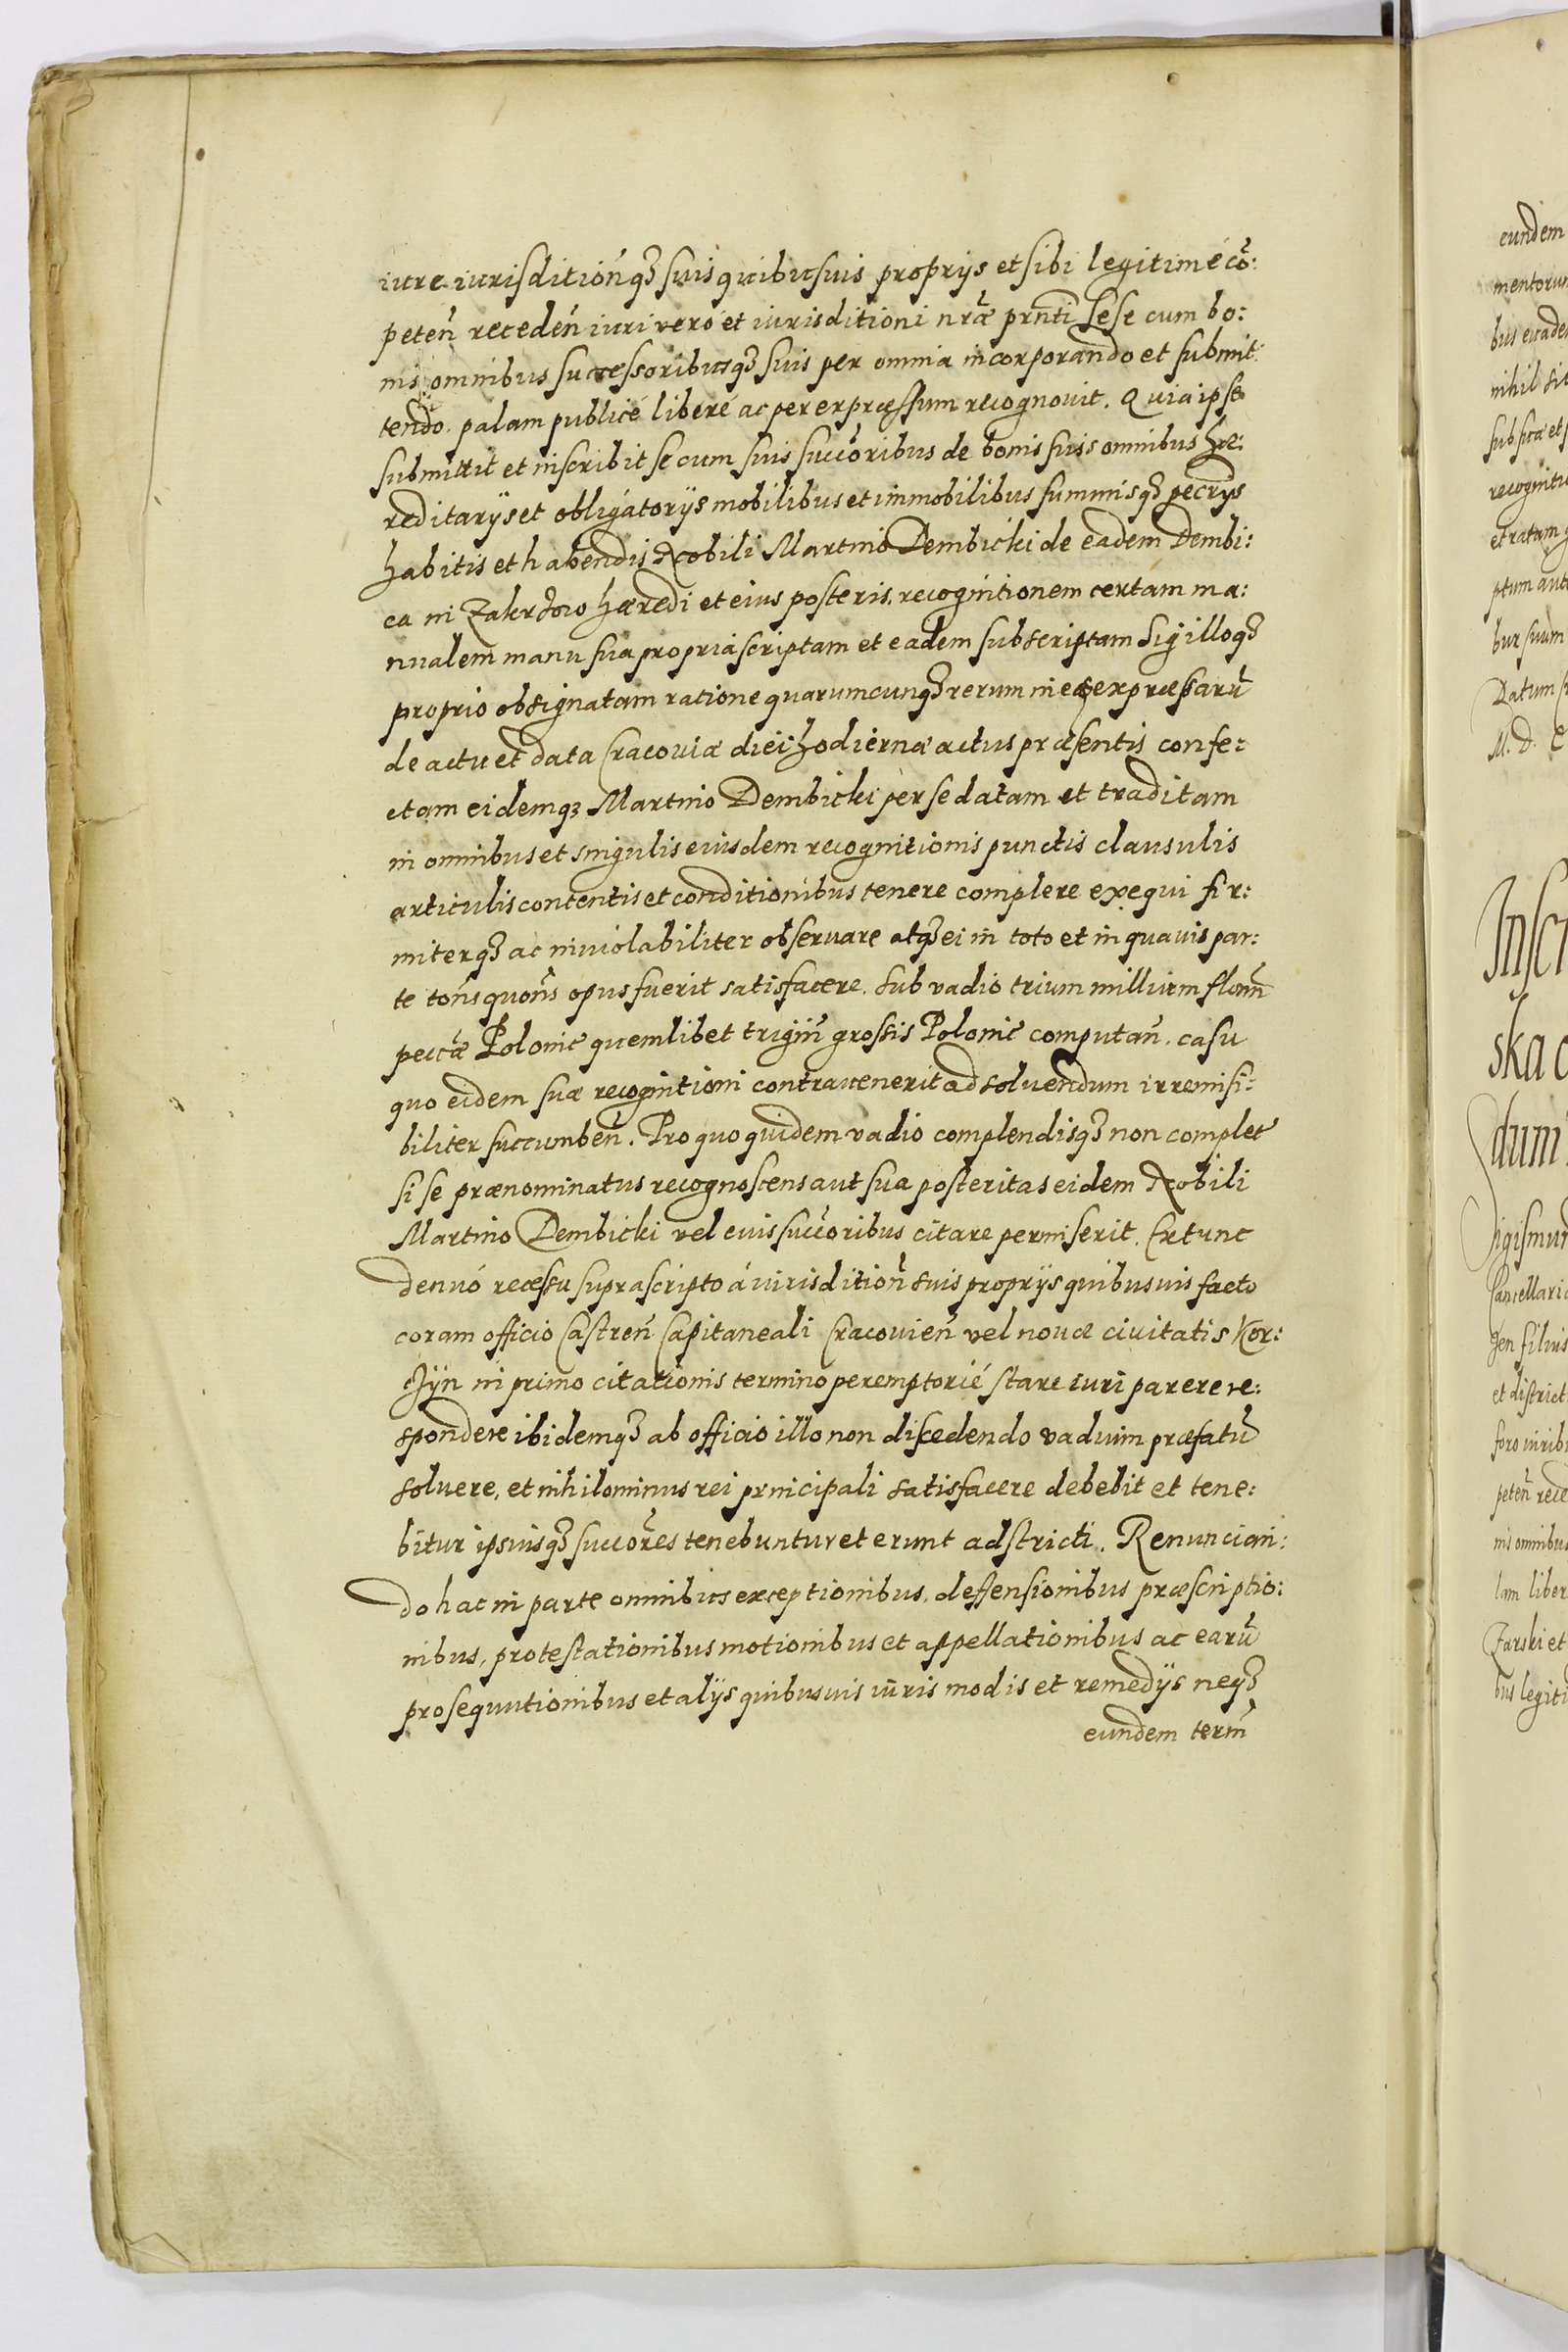 iure iurisdition̄q₃ suis quibusuis proprijs et sibi legitimé cō:
peten̄ receden̄ iuri vero et iurisditioni nr̄æ prn̄ti sese cum bo:
nis omnibus successoribusq₃ suis per omnia incorporando et submit:
tendo. palam publicé liberé ac per expræssum recognouit. Quia ipse
submittit et inscribit se cum suis succōribus de bonis suis omnibus hæ:
reditarijs et obligatorijs mobilibus et immobilibus summisq₃ pecr̄ijs
habitis et habendis Nobili Martino Dembicki de eadem Dembi:
ca in Zakrzow hæredi et eius posteris, recognitionem certam ma:
nualem manu sua propria scriptam et eadem subscriptam Sigilloq₃
proprio obsignatam ratione quarumcunq₃ rerum in ea expræssarū
de actu et data Cracouiæ diei hodiernæ actus præsentis confe:
ctam eidemq₃ Martino Dembicki per se datam et traditam
in omnibus et singulis eiusdem recognitionis punctis clausulis
articulis contentis et conditionibus tenere complere exequi fir:
miterq₃ ac inuiolabiliter obseruare atq₃ ei in toto et in quauis par:
te ton̄s quon̄s opus fuerit satisfacere. Sub vadio trium millium floren̄
pecūæ Polonic̄ quemlibet trigin̄ grossis Polonic̄ computan̄. casu
quo eidem suæ recognitioni contrauenerit ad soluendum irremisi:
biliter succumben̄. Pro quo quidem vadio complendisq₃ non complet̄
si se prænominatus recognoscens aut sua posteritas eidem Nobili
Martino Dembicki vel euis succōribus citare permiserit. Extunc
denuó recessu suprascripto á iurisdition̄ suis proprijs quibusuis facto
coram officio Castren̄ Capitaneali Cracouien̄ vel nouæ ciuitatis Kor:
czÿn in primo citationis termino peremptorié stare iuri parere re:
spondere ibidemq₃ ab officio illo non discedendo vadium præfatū
soluere, et nihilominus rei principali satisfacere debebit et tene:
bitur ipsiusq₃ succōres tenebuntur et erunt adstricti. Renuncian:
do hac in parte omnibus exceptionibus, deffensionibus præscriptio:
nibus, protestationibus motionibus et appellationibus ac earū
prosequutionibus et alijs quibusuis iuris modis et remedijs neq₃
eundem term̄
eundem
mentorum
bus euade
nihil sit
sub
recogniti
et ratam
ptum aut
bur suum
Datum
M. D.
Inscr
ska
dum
Sigismun
Cancellari
gen filius
et district
foro iurib
peten̄ rece
nis omnibus
lam liber
Zarski et
bus legiti